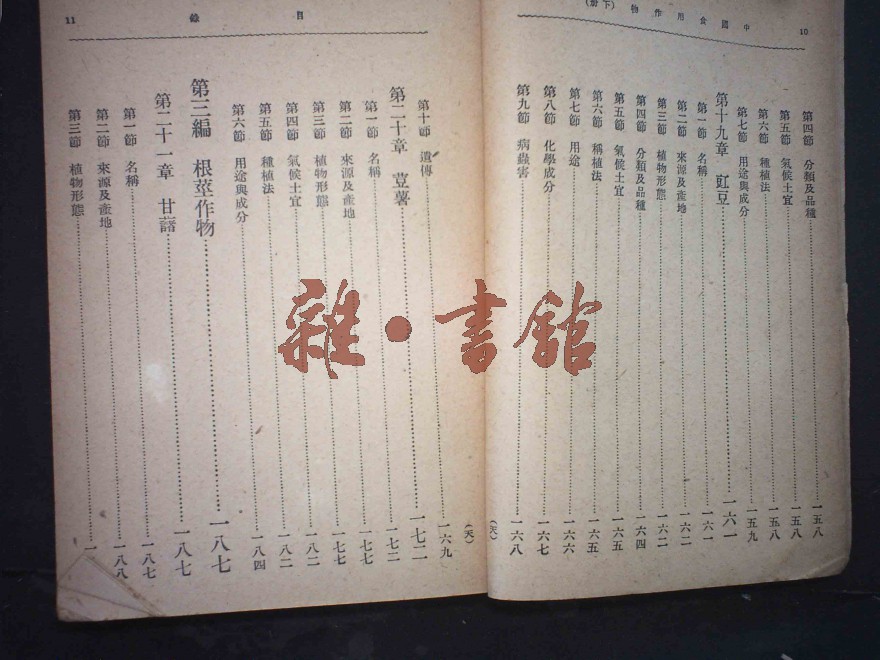 10
中國食用作物(下冊)
第四節 分類及品種……一五八
第五節 氣候土宜……一五八
第六節 種植法……一五八
第七節 用途與成分……一五九
第十九章 豇豆……一六一
第一節 名稱……一六一
第二節 來源及產地……一六二
第三節 植物形態……一六二
第四節 分類及品種……一六四
第五節 氣候土宜……一六五
第六節 稱植法……一六五
第七節 用途……一六六
第八節 化學成分……一六七
第九節 病蟲害……一六八
(天)
目錄
11
(天)
第十節 遺傳……一六九
第二十章 荳薯……一七二
第一節 名稱……一七二
第二節 來源及產地……一七七
第三節 植物形態……一七七
第四節 氣候土宜……一八二
第五節 種植法……一八二
第六節 用途與成分……一八四
第三編 根莖作物……一八七
第二十一章 甘藷……一八七
第一節 名稱……一八七
第二節 來源及產地……一八八
第三節 植物形態……一
雜·書館